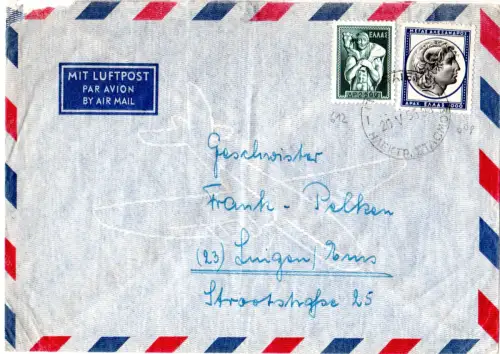 MIT LUFTPOST
PAR AVION
BY AIR MAIL
ΕΛΛΑΣ
ΜΕΓΑΣ ΑΛΕΞΑΝΔΡΟΣ
ΕΛΛΑΣ
20 V
692
Geschwister
Frank - Pelken
(23) Lingen/Ems
Strootstraße 25